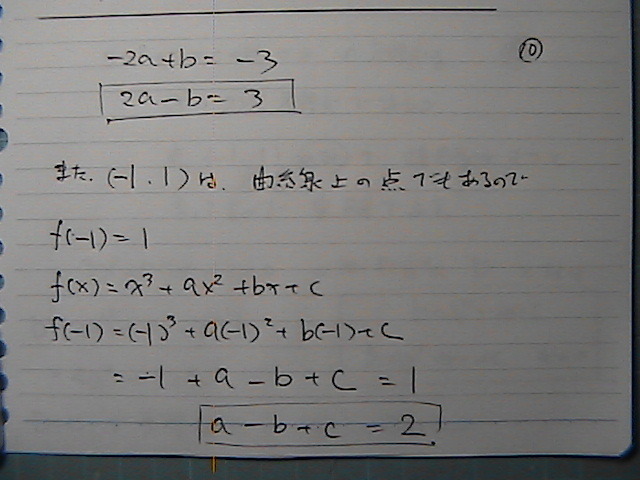 ⑩
-2a+b= -3
2a-b= 3
また、(-1、1)は、曲線上の点でもあるので
f(-1)=1
f(x)=x³+ax²+bx+c
f(-1)=(-1)³+a(-1)²+b(-1)+c
= -1 + a - b + c = 1
a - b + c = 2